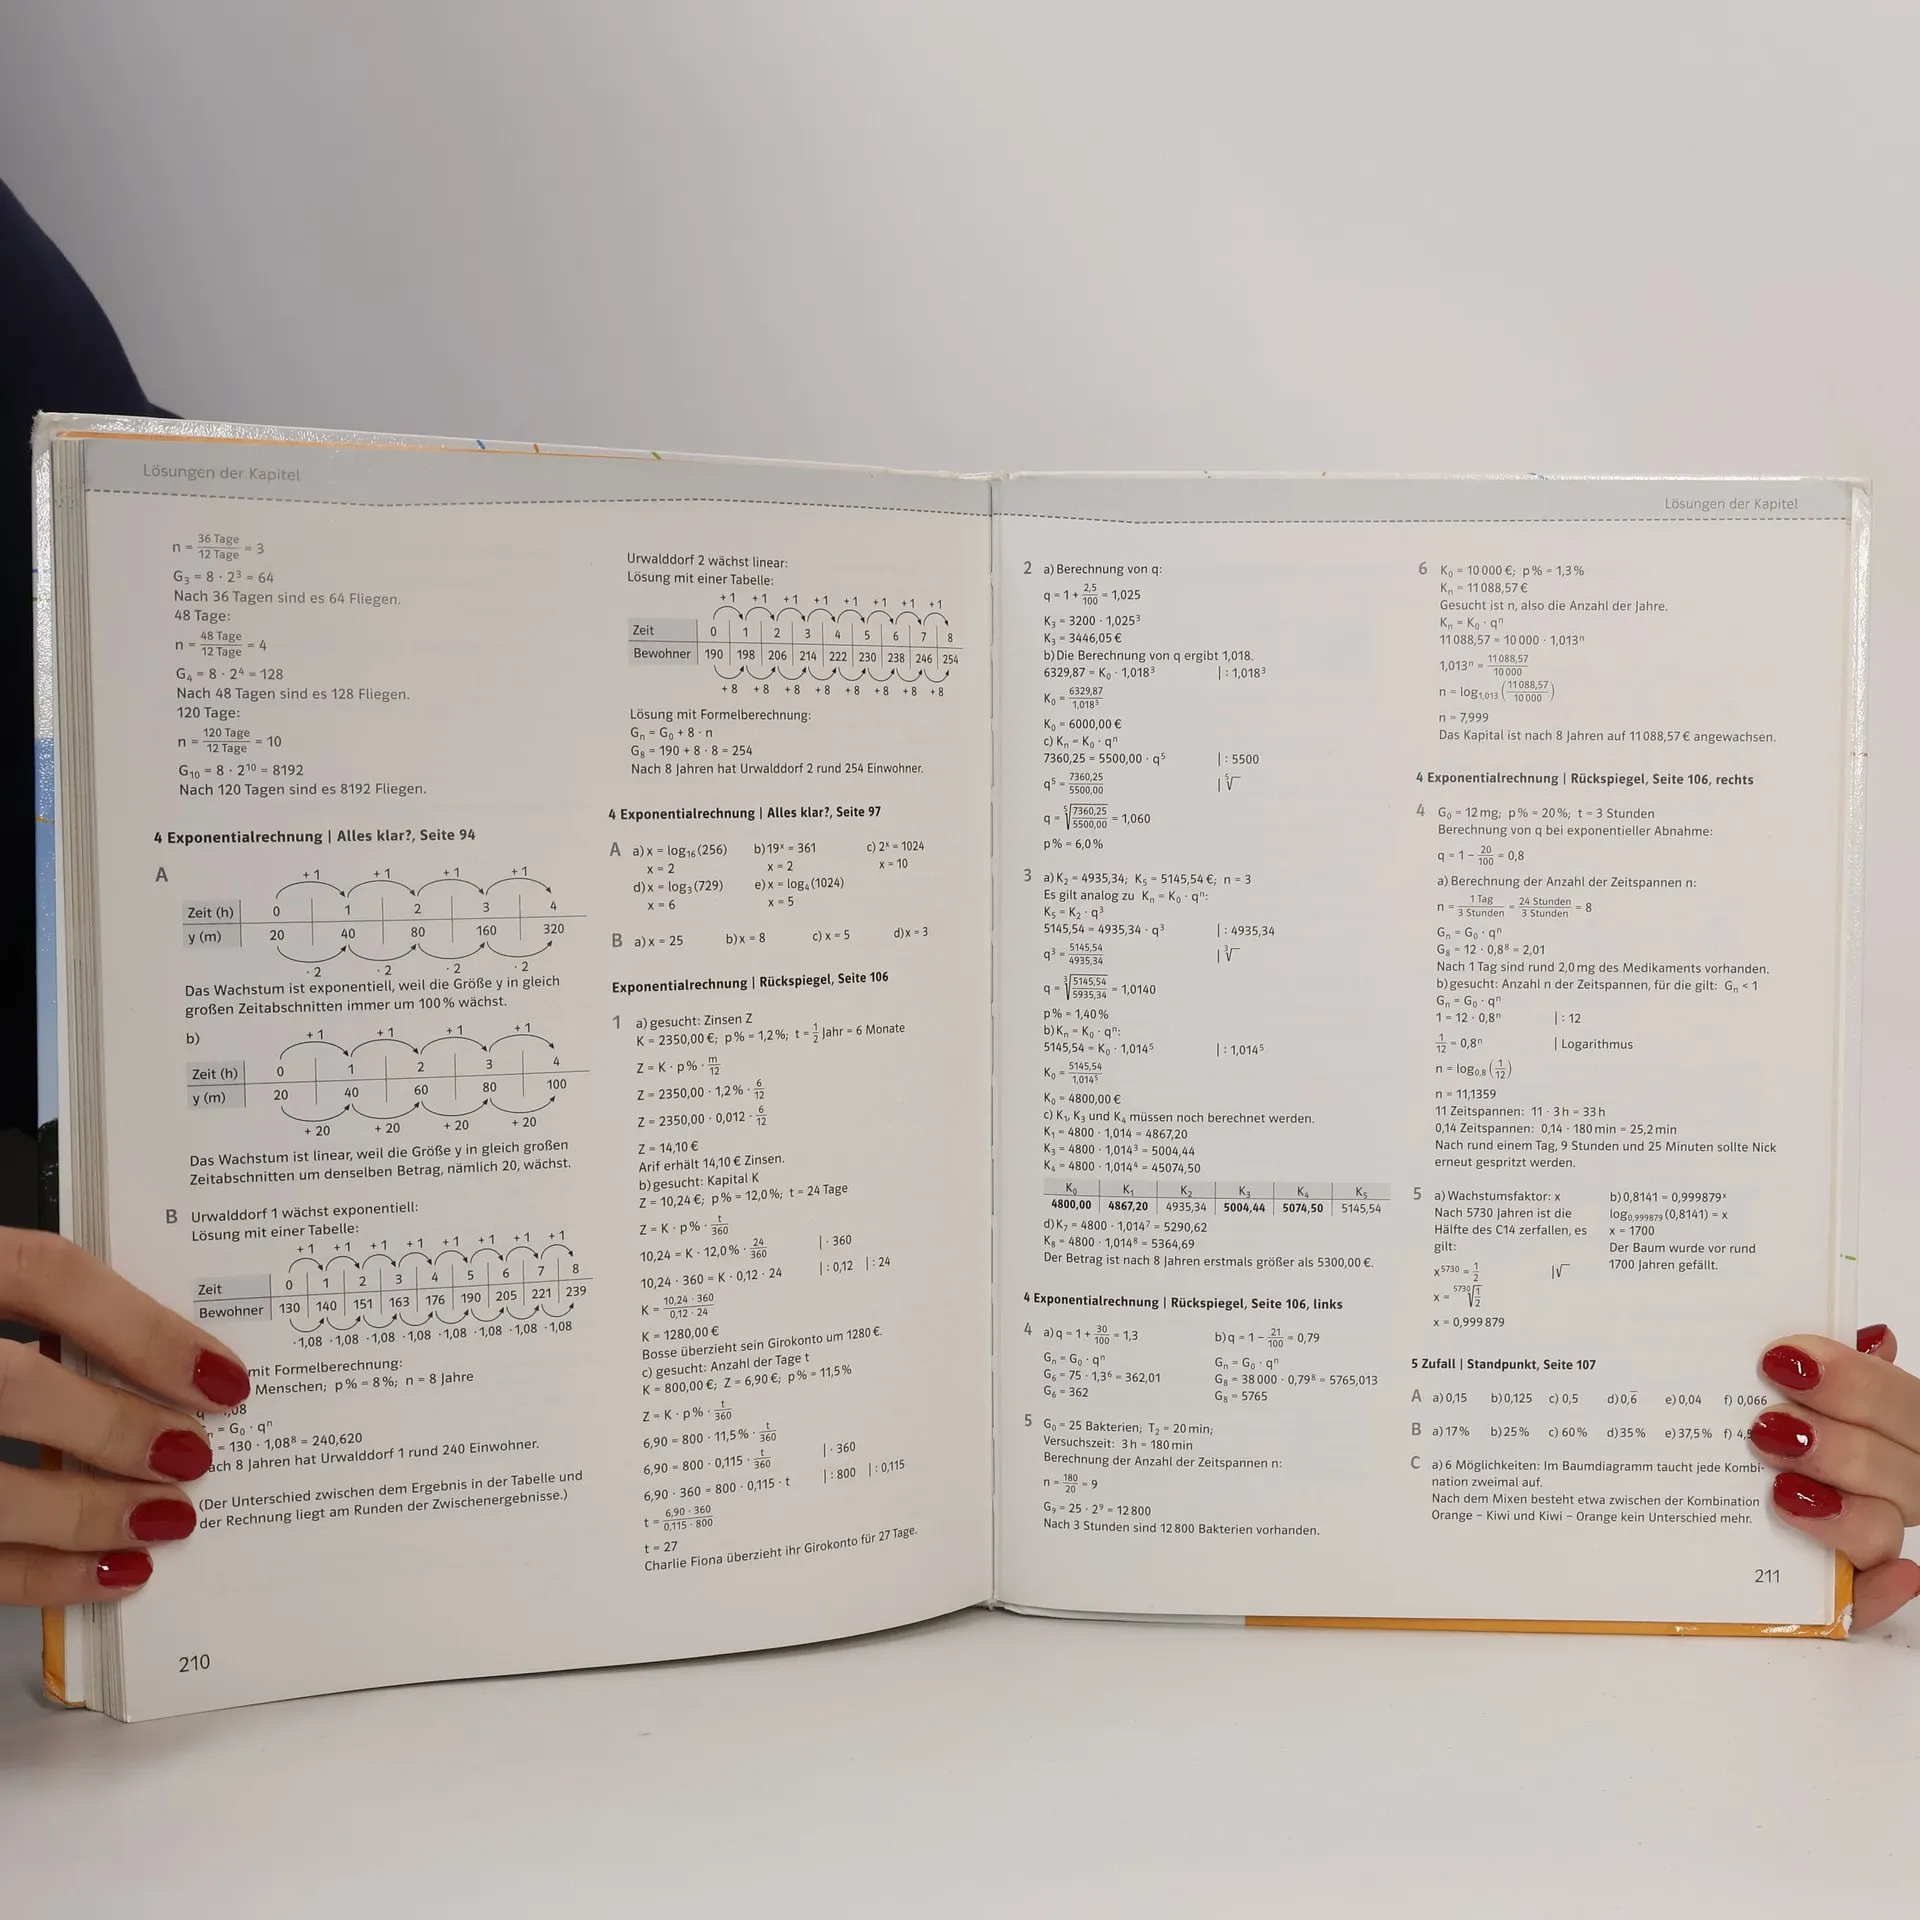 Lösungen der Kapitel
n = 36 Tage / 12 Tage = 3
G₃ = 8 · 2³ = 64
Nach 36 Tagen sind es 64 Fliegen.
48 Tage:
n = 48 Tage / 12 Tage = 4
G₄ = 8 · 2⁴ = 128
Nach 48 Tagen sind es 128 Fliegen.
120 Tage:
n = 120 Tage / 12 Tage = 10
G₁₀ = 8 · 2¹⁰ = 8192
Nach 120 Tagen sind es 8192 Fliegen.
4 Exponentialrechnung | Alles klar?, Seite 94
A
+ 1 + 1 + 1 + 1
Zeit (h) 0 1 2 3 4
y (m) 20 40 80 160 320
· 2 · 2 · 2 · 2
Das Wachstum ist exponentiell, weil die Größe y in gleich
großen Zeitabschnitten immer um 100 % wächst.
b)
+ 1 + 1 + 1 + 1
Zeit (h) 0 1 2 3 4
y (m) 20 40 60 80 100
+ 20 + 20 + 20 + 20
Das Wachstum ist linear, weil die Größe y in gleich großen
Zeitabschnitten um denselben Betrag, nämlich 20, wächst.
B Urwalddorf 1 wächst exponentiell:
Lösung mit einer Tabelle:
+ 1 + 1 + 1 + 1 + 1 + 1 + 1 + 1
Zeit 0 1 2 3 4 5 6 7 8
Bewohner 130 140 151 163 176 190 205 221 239
· 1,08 · 1,08 · 1,08 · 1,08 · 1,08 · 1,08 · 1,08 · 1,08
mit Formelberechnung:
Menschen; p % = 8 %; n = 8 Jahre
1,08
= G₀ · qⁿ
= 130 · 1,08⁸ = 240,620
ach 8 Jahren hat Urwalddorf 1 rund 240 Einwohner.
(Der Unterschied zwischen dem Ergebnis in der Tabelle und
der Rechnung liegt am Runden der Zwischenergebnisse.)
210
Urwalddorf 2 wächst linear:
Lösung mit einer Tabelle:
+ 1 + 1 + 1 + 1 + 1 + 1 + 1 + 1
Zeit 0 1 2 3 4 5 6 7 8
Bewohner 190 198 206 214 222 230 238 246 254
+ 8 + 8 + 8 + 8 + 8 + 8 + 8 + 8
Lösung mit Formelberechnung:
Gₙ = G₀ + 8 · n
G₈ = 190 + 8 · 8 = 254
Nach 8 Jahren hat Urwalddorf 2 rund 254 Einwohner.
4 Exponentialrechnung | Alles klar?, Seite 97
A a) x = log₁₆ (256) b) 19ˣ = 361 c) 2ˣ = 1024
x = 2 x = 2 x = 10
d) x = log₃ (729) e) x = log₄ (1024)
x = 6 x = 5
B a) x = 25 b) x = 8 c) x = 5 d) x = 3
Exponentialrechnung | Rückspiegel, Seite 106
1 a) gesucht: Zinsen Z
K = 2350,00 €; p % = 1,2 %; t = 1/2 Jahr = 6 Monate
Z = K · p % · m/12
Z = 2350,00 · 1,2 % · 6/12
Z = 2350,00 · 0,012 · 6/12
Z = 14,10 €
Arif erhält 14,10 € Zinsen.
b) gesucht: Kapital K
Z = 10,24 €; p % = 12,0 %; t = 24 Tage
Z = K · p % · t/360
10,24 = K · 12,0 % · 24/360 | · 360
10,24 · 360 = K · 0,12 · 24 | : 0,12 | : 24
K = 10,24 · 360 / 0,12 · 24
K = 1280,00 €
Bosse überzieht sein Girokonto um 1280 €.
c) gesucht: Anzahl der Tage t
K = 800,00 €; Z = 6,90 €; p % = 11,5 %
Z = K · p % · t/360
6,90 = 800 · 11,5 % · t/360
6,90 = 800 · 0,115 · t/360 | · 360
6,90 · 360 = 800 · 0,115 · t | : 800 | : 0,115
t = 6,90 · 360 / 0,115 · 800
t = 27
Charlie Fiona überzieht ihr Girokonto für 27 Tage.
Lösungen der Kapitel
2 a) Berechnung von q:
q = 1 + 2,5/100 = 1,025
K₃ = 3200 · 1,025³
K₃ = 3446,05 €
b) Die Berechnung von q ergibt 1,018.
6329,87 = K₀ · 1,018³ | : 1,018³
K₀ = 6329,87 / 1,018³
K₀ = 6000,00 €
c) Kₙ = K₀ · qⁿ
7360,25 = 5500,00 · q⁵ | : 5500
q⁵ = 7360,25 / 5500,00 | ⁵√
q = ⁵√(7360,25 / 5500,00) = 1,060
p % = 6,0 %
3 a) K₂ = 4935,34; K₅ = 5145,54 €; n = 3
Es gilt analog zu Kₙ = K₀ · qⁿ:
K₅ = K₂ · q³
5145,54 = 4935,34 · q³ | : 4935,34
q³ = 5145,54 / 4935,34 | ³√
q = ³√(5145,54 / 5935,34) = 1,0140
p % = 1,40 %
b) Kₙ = K₀ · qⁿ:
5145,54 = K₀ · 1,014⁵ | : 1,014⁵
K₀ = 5145,54 / 1,014⁵
K₀ = 4800,00 €
c) K₁, K₃ und K₄ müssen noch berechnet werden.
K₁ = 4800 · 1,014 = 4867,20
K₃ = 4800 · 1,014³ = 5004,44
K₄ = 4800 · 1,014⁴ = 45074,50
K₀ K₁ K₂ K₃ K₄ K₅
4800,00 4867,20 4935,34 5004,44 5074,50 5145,54
d) K₇ = 4800 · 1,014⁷ = 5290,62
K₈ = 4800 · 1,014⁸ = 5364,69
Der Betrag ist nach 8 Jahren erstmals größer als 5300,00 €.
4 Exponentialrechnung | Rückspiegel, Seite 106, links
4 a) q = 1 + 30/100 = 1,3 b) q = 1 − 21/100 = 0,79
Gₙ = G₀ · qⁿ Gₙ = G₀ · qⁿ
G₆ = 75 · 1,3⁶ = 362,01 G₈ = 38 000 · 0,79⁸ = 5765,013
G₆ = 362 G₈ = 5765
5 G₀ = 25 Bakterien; T₂ = 20 min;
Versuchszeit: 3 h = 180 min
Berechnung der Anzahl der Zeitspannen n:
n = 180/20 = 9
G₉ = 25 · 2⁹ = 12 800
Nach 3 Stunden sind 12 800 Bakterien vorhanden.
6 K₀ = 10 000 €; p % = 1,3 %
Kₙ = 11 088,57 €
Gesucht ist n, also die Anzahl der Jahre.
Kₙ = K₀ · qⁿ
11 088,57 = 10 000 · 1,013ⁿ
1,013ⁿ = 11 088,57 / 10 000
n = log₁,₀₁₃ (11 088,57 / 10 000)
n = 7,999
Das Kapital ist nach 8 Jahren auf 11 088,57 € angewachsen.
4 Exponentialrechnung | Rückspiegel, Seite 106, rechts
4 G₀ = 12 mg; p % = 20 %; t = 3 Stunden
Berechnung von q bei exponentieller Abnahme:
q = 1 − 20/100 = 0,8
a) Berechnung der Anzahl der Zeitspannen n:
n = 1 Tag / 3 Stunden = 24 Stunden / 3 Stunden = 8
Gₙ = G₀ · qⁿ
G₈ = 12 · 0,8⁸ = 2,01
Nach 1 Tag sind rund 2,0 mg des Medikaments vorhanden.
b) gesucht: Anzahl n der Zeitspannen, für die gilt: Gₙ < 1
Gₙ = G₀ · qⁿ
1 = 12 · 0,8ⁿ | : 12
1/12 = 0,8ⁿ | Logarithmus
n = log₀,₈ (1/12)
n = 11,1359
11 Zeitspannen: 11 · 3 h = 33 h
0,14 Zeitspannen: 0,14 · 180 min = 25,2 min
Nach rund einem Tag, 9 Stunden und 25 Minuten sollte Nick
erneut gespritzt werden.
5 a) Wachstumsfaktor: x
Nach 5730 Jahren ist die
Hälfte des C14 zerfallen, es
gilt:
x⁵⁷³⁰ = 1/2 | √
x = ⁵⁷³⁰√(1/2)
x = 0,999 879
b) 0,8141 = 0,999879ˣ
log₀,₉₉₉₈₇₉ (0,8141) = x
x = 1700
Der Baum wurde vor rund
1700 Jahren gefällt.
5 Zufall | Standpunkt, Seite 107
A a) 0,15 b) 0,125 c) 0,5 d) 0,6̅ e) 0,04 f) 0,066
B a) 17 % b) 25 % c) 60 % d) 35 % e) 37,5 % f) 4,
C a) 6 Möglichkeiten: Im Baumdiagramm taucht jede Kombi-
nation zweimal auf.
Nach dem Mixen besteht etwa zwischen der Kombination
Orange – Kiwi und Kiwi – Orange kein Unterschied mehr.
211